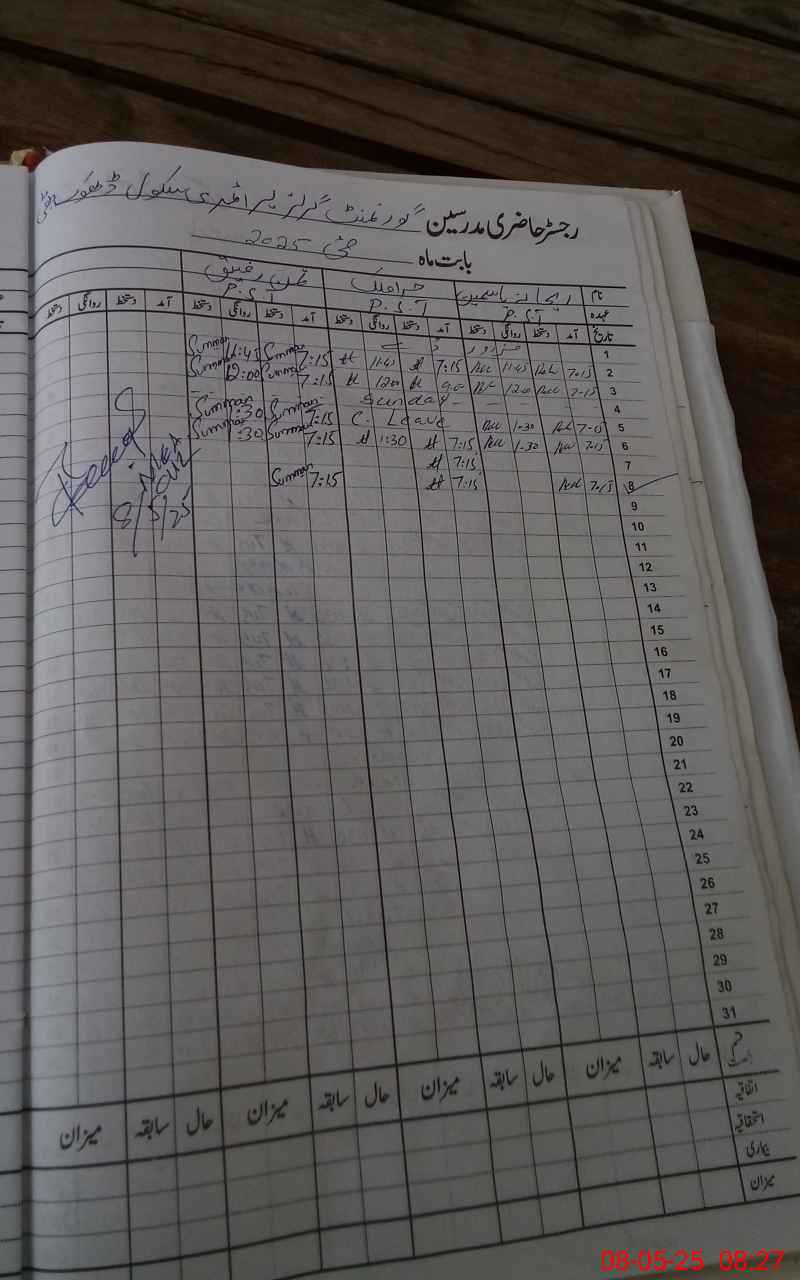 رجسٹر حاضری مدرسین گورنمنٹ گرلز پرائمری سکول ڈھوک
بابت ماہ مئی 2025
نام ریحانہ یاسمین حرا ملک ثمن رفیق
عہدہ P.S.T P.S.T P.S.T
تاریخ آمد دستخط روانگی دستخط آمد دستخط روانگی دستخط آمد دستخط روانگی دستخط آمد دستخط روانگی دستخط
1
2 7:15 11:45 7:15 11:45 7:15 Summan 11:45 Summan
3 7:15 12:00 9:0 12:00 7:15 Summan 12:00 Summan
4 Sunday
5 7:15 1:30 C. Leave 7:15 Summan 1:30 Summan
6 7:15 1:30 7:15 1:30 7:15 Summan 1:30 Summan
7 7:15
8 7:15 7:15 7:15 Summan
MEA
8/5/25
9
10
11
12
13
14
15
16
17
18
19
20
21
22
23
24
25
26
27
28
29
30
31
قسم رخصت حال سابقہ میزان حال سابقہ میزان حال سابقہ میزان حال سابقہ میزان
اتفاقیہ
استحقاقیہ
بیماری
میزان
08-05-25 08:27